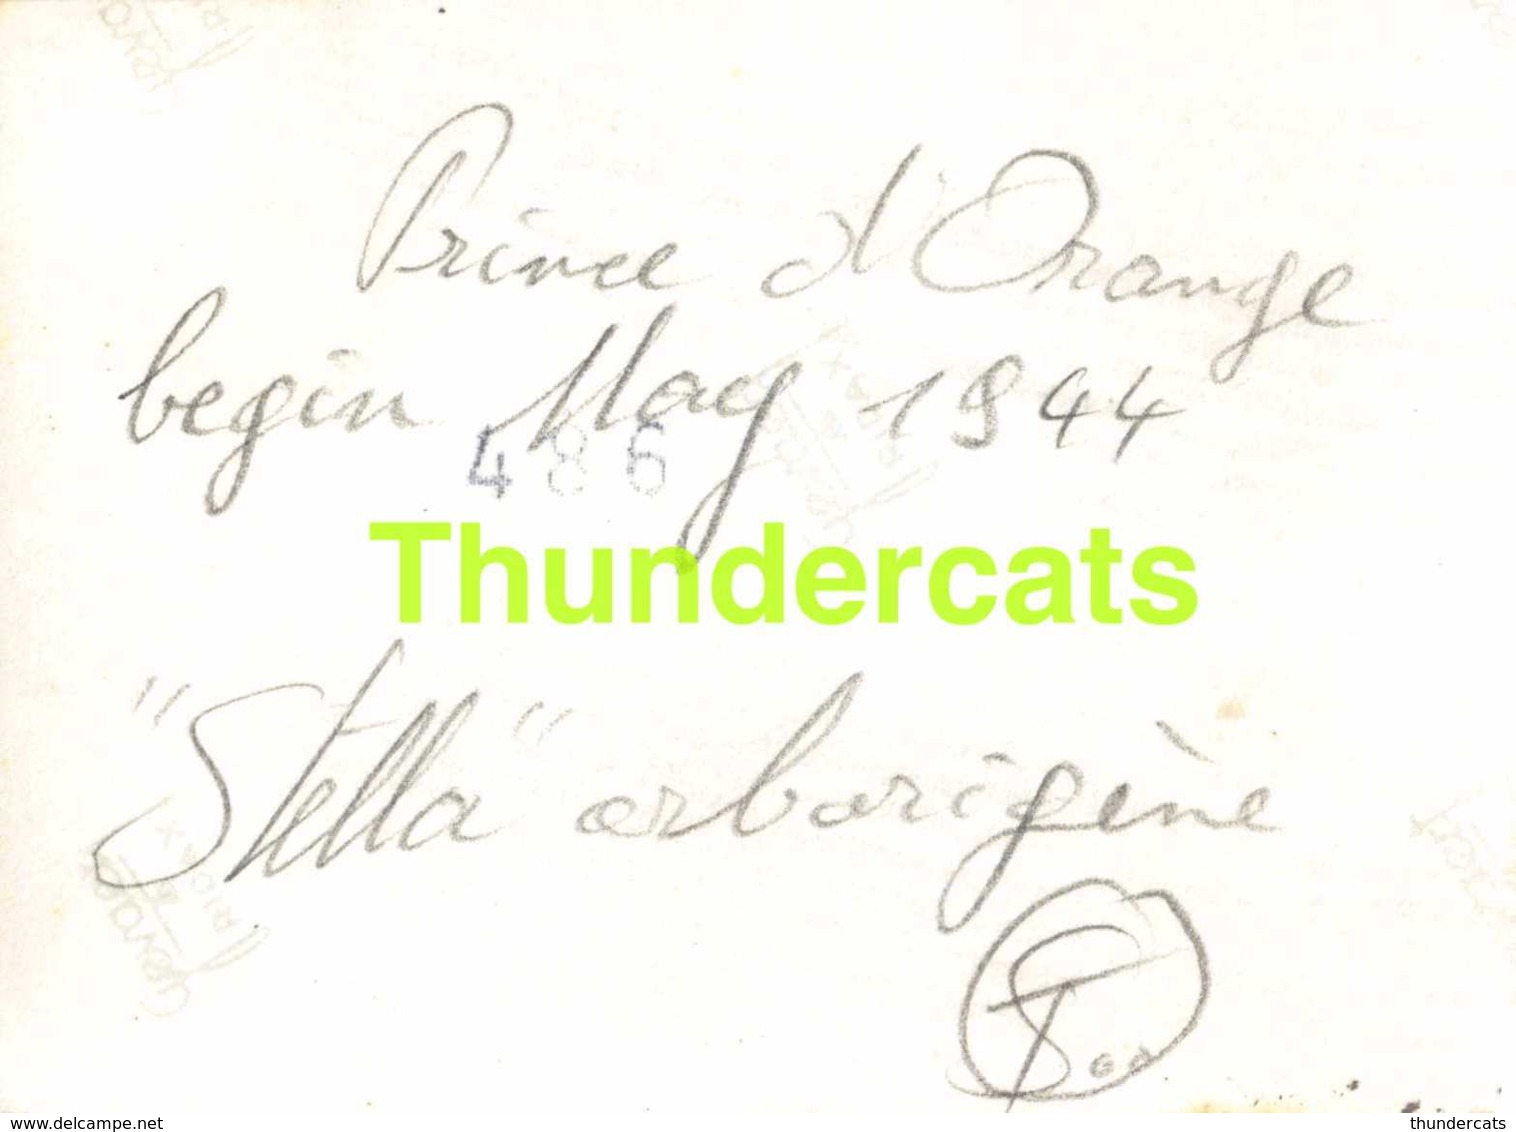 Prince d'Orange
begin May 1944
486
Thundercats
"Stella" arborigène
Gevaert
www.delcampe.net
thundercats